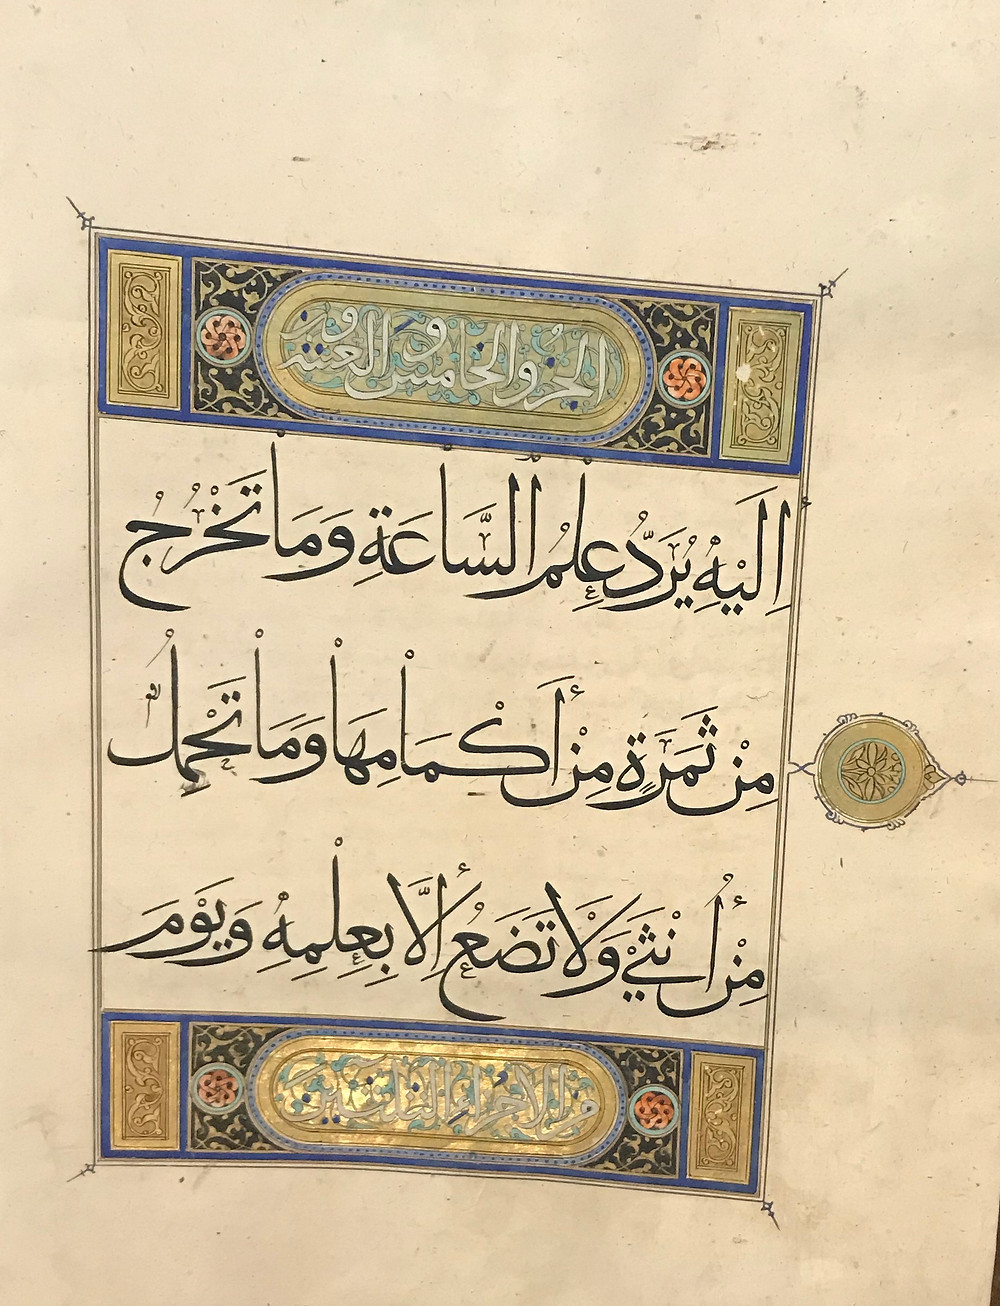 الجزو الخامس والعشرون
اِلَيْهِ يُرَدُّ عِلْمُ السَّاعَةِ وَمَا تَخْرُجُ
مِنْ ثَمَرَةٍ مِنْ أَكْمَامِهَا وَمَا تَحْمِلُ
مِنْ أُنْثَى وَلَا تَضَعُ إِلَّا بِعِلْمِهِ وَيَوْمَ
من الاجزاء الثلثين